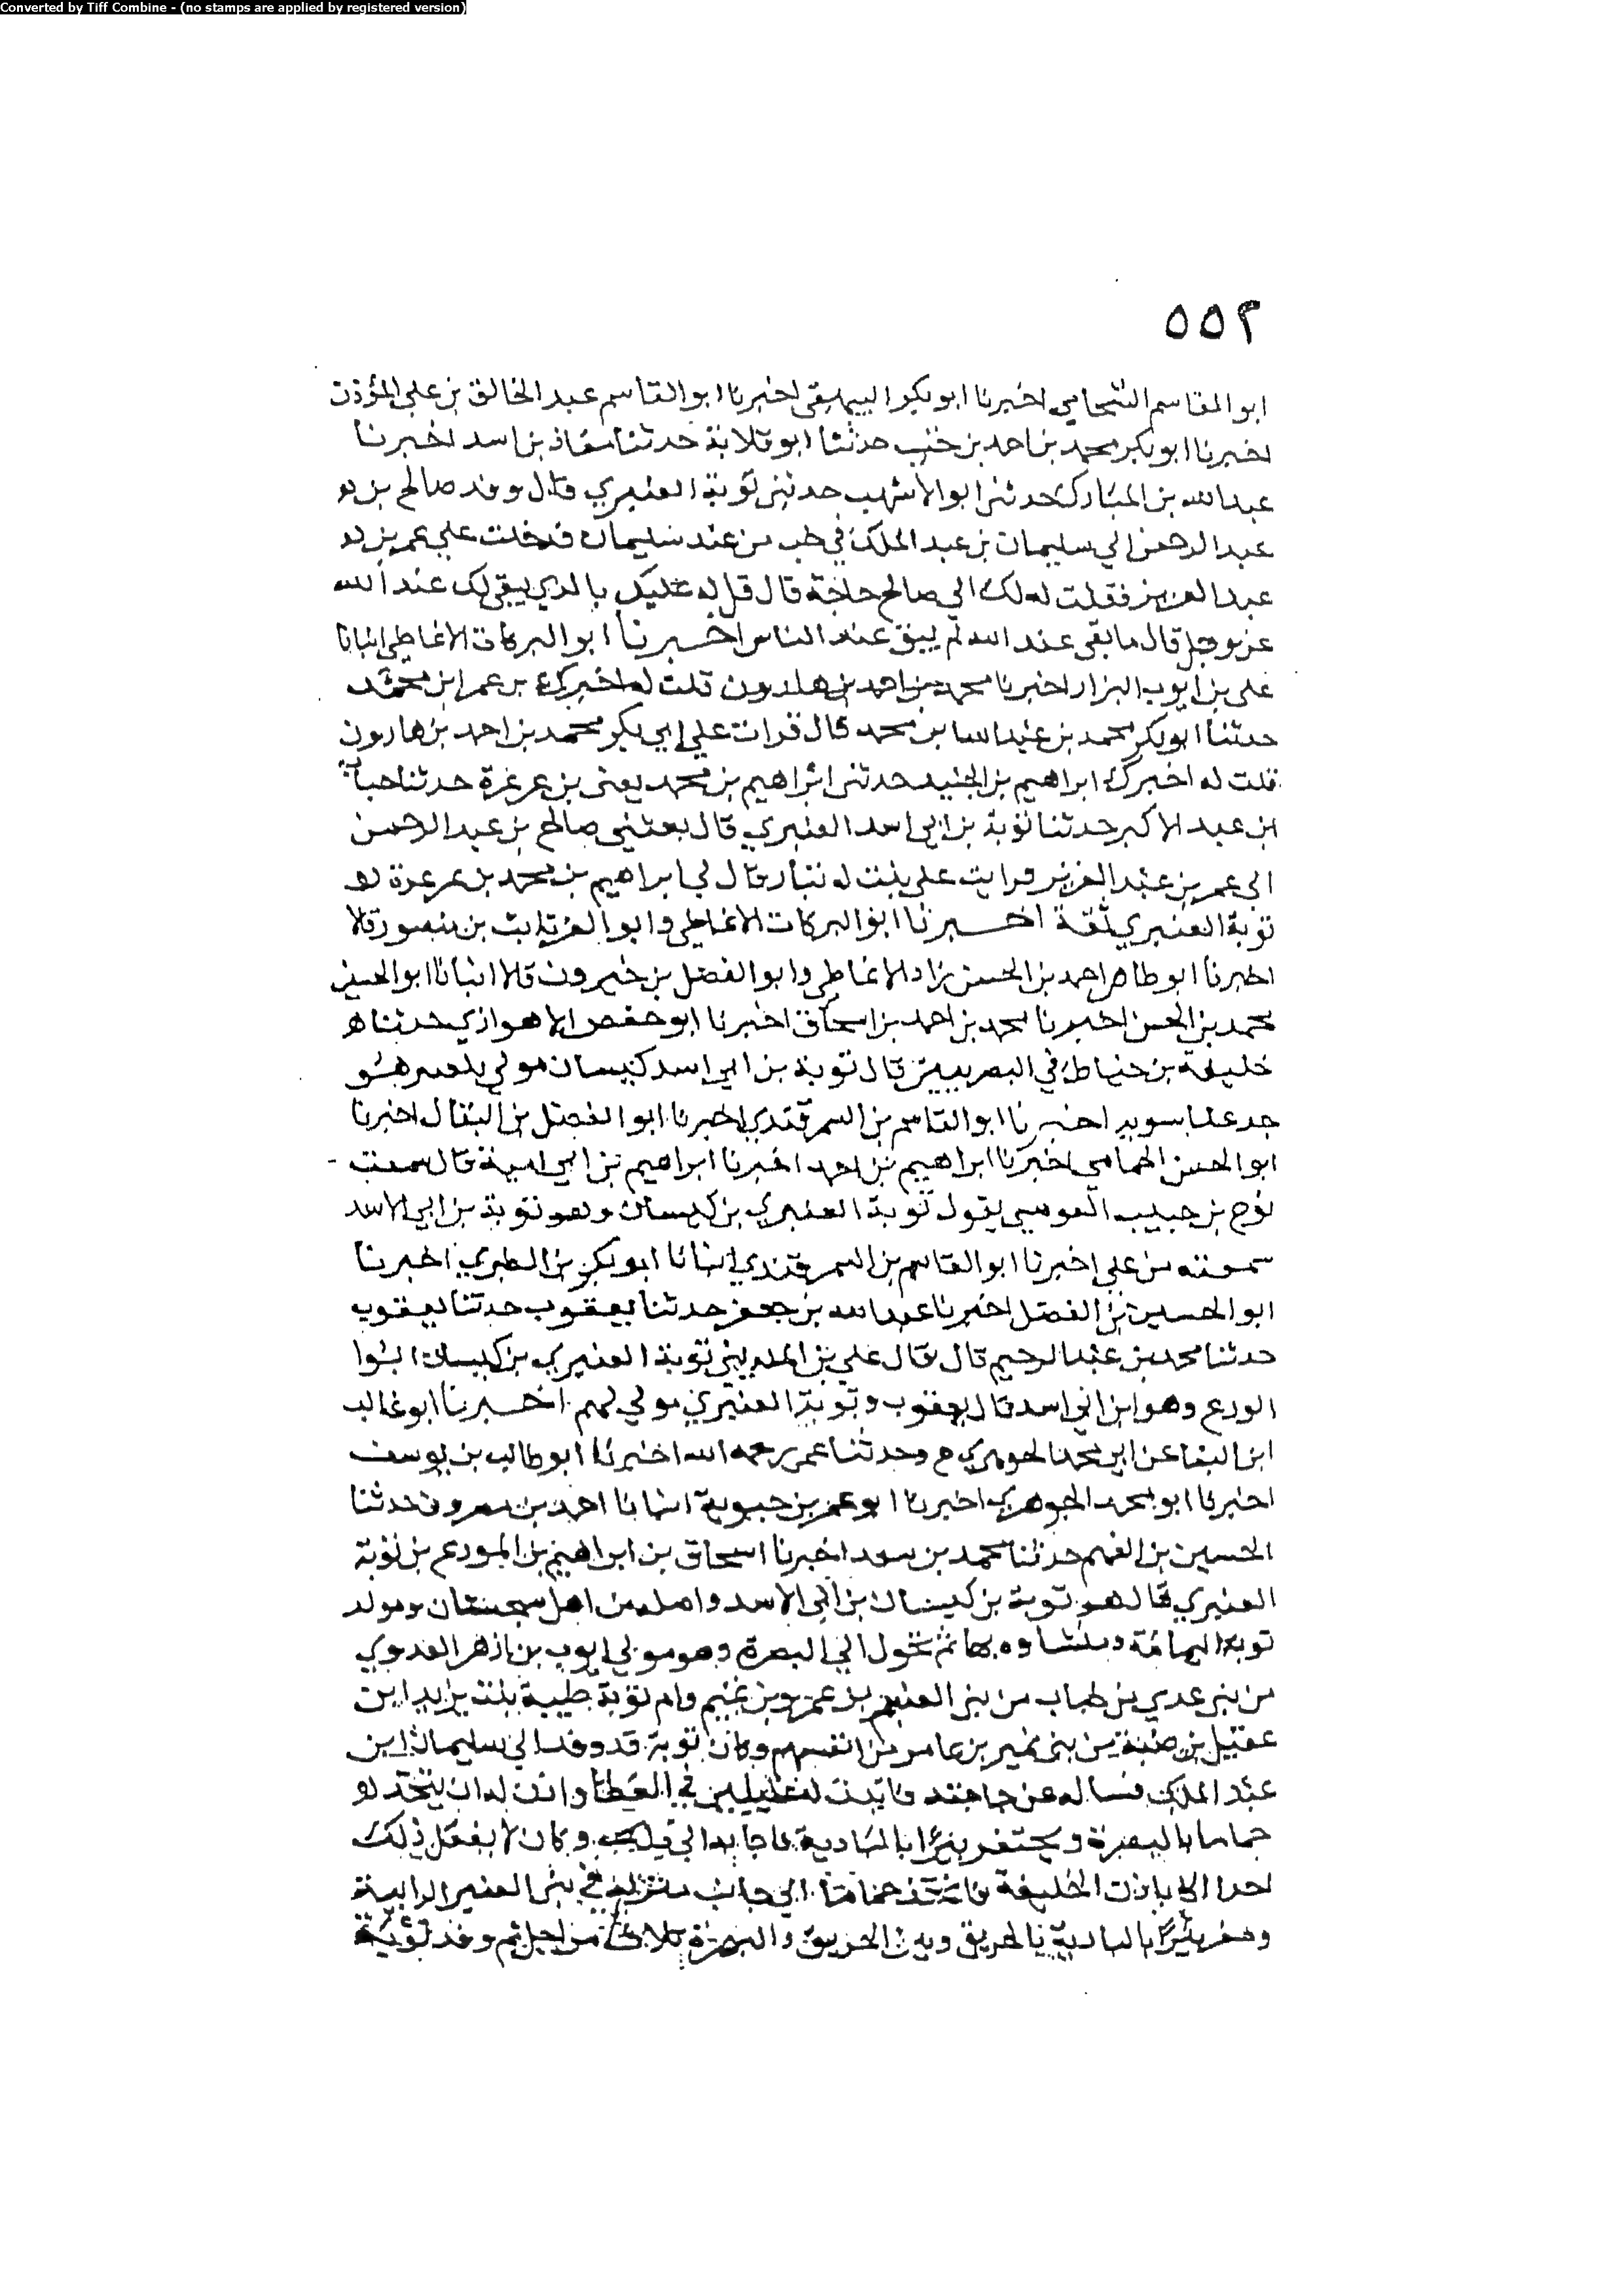 Converted by Tiff Combine - (no stamps are applied by registered version)
٥٥٢
ابو القاسم الشحامي اخبرنا ابو بكر البيهقي اخبرنا ابو القاسم عبد الخالق بن علي المؤذن
اخبرنا ابو بكر محمد بن احمد بن خنب حدثنا ابو قلابة حدثنا معاذ بن اسد اخبرنا
عبد الله بن المبارك حدثني ابو الاشهب حدثني توبة العنبري قال وفد صالح بن
عبد الرحمن الي سليمان بن عبد الملك في من عند سليمان فدخلت علي عمر بن
عبد العزيز فقلت له لك الي صالح حاجة قال قل له عليك بالذي يبقى لك عند الله
عز وجل قال ما بقى عند الله لم يبق عند الناس اخبرنا ابو البركات الانماطي انبانا
علي بن ايوب البزار اخبرنا محمد بن احمد بن هارون قلت له اخبرك بن عمر ابن محمد
حدثنا ابو بكر محمد بن عبد بن محمد قال قرات علي ابي بكر محمد بن احمد بن هارون
قلت له اخبرك ابراهيم بن الجنيد حدثني ابراهيم بن محمد يعني بن عرعرة حدثنا
ابن عبد الاكبر حدثنا توبة بن ابي اسد العنبري قال بعثني صالح بن عبد الرحمن
الي عمر بن عبد العزيز فرايت علي بنت له وقال لي ابراهيم بن محمد بن عرعرة
توبة العنبري ثقة اخبرنا ابو البركات الانماطي وابو العز ثابت بن منصور قالا
اخبرنا ابو طاهر احمد بن الحسن زاد الانماطي وابو الفضل بن خيرون قالا انبانا ابو الحسين
محمد بن الحسن اخبرنا محمد بن احمد بن اسحاق اخبرنا ابو حفص الاهوازي حدثنا
خليفة بن خياط في البصريين قال توبة بن ابي اسد كيسان مولي هو
جد اخبرنا ابو القاسم بن السمرقندي اخبرنا ابو الفضل بن البقال اخبرنا
ابو الحسن الحمامي اخبرنا ابراهيم بن احمد اخبرنا ابراهيم بن ابي امية قال سمعت
نوح بن حبيب القومسي يقول توبة العنبري بن كيسان وهو توبة بن ابي الاسد
سمعته من علي اخبرنا ابو القاسم بن السمرقندي انبانا ابو بكر بن الطبري اخبرنا
ابو الحسين بن الفضل اخبرنا عبد الله بن جعفر حدثنا يعقوب حدثنا يعقوب
حدثنا محمد بن عبد الرحيم قال قال علي بن المديني توبة العنبري بن كيسان ابو
المورع وهو ابن ابي اسد قال يعقوب وتوبة العنبري مولي لهم اخبرنا ابو غالب
ابن البنا عن ابي محمد الجوهري ح وحدثنا عمي رحمه الله اخبرنا ابو طالب بن يوسف
اخبرنا ابو محمد الجوهري اخبرنا ابو عمر بن حيوية انبانا احمد بن معروف حدثنا
الحسين بن الفهم حدثنا محمد بن سعد اخبرنا اسحاق بن ابراهيم بن المورع بن توبة
العنبري قال هو توبة بن كيسان بن ابي الاسد واصله من اهل سجستان ومولد
توبة اليمامة ومنشاوه بها ثم تحول الي البصرة وهو مولي ايوب بن ازهر العدوي
من بني عدي بن جناب من بني العنبر بن عمرو بن تميم وام توبة طيبة بنت يزيد ابن
عقيل بن ضبة من بني نمير بن عامر من انفسهم وكان توبة قد وفد الي سليمان ابن
عبد الملك فساله عن حاجته في العطا واذن له ان يتخذ
حماما بالبصرة ويحتفر بئرا بالبادية فاجابه الي ذلك وكان لا يفعل ذلك
احدا الا باذن الخليفة فاتخذ حماما الي جانب منزله في بني العنبر الرابية
وحفر بئرا بالبادية بالحريق وبين الحريق والبصرة ثلاث مراحل ثم وفد توبة